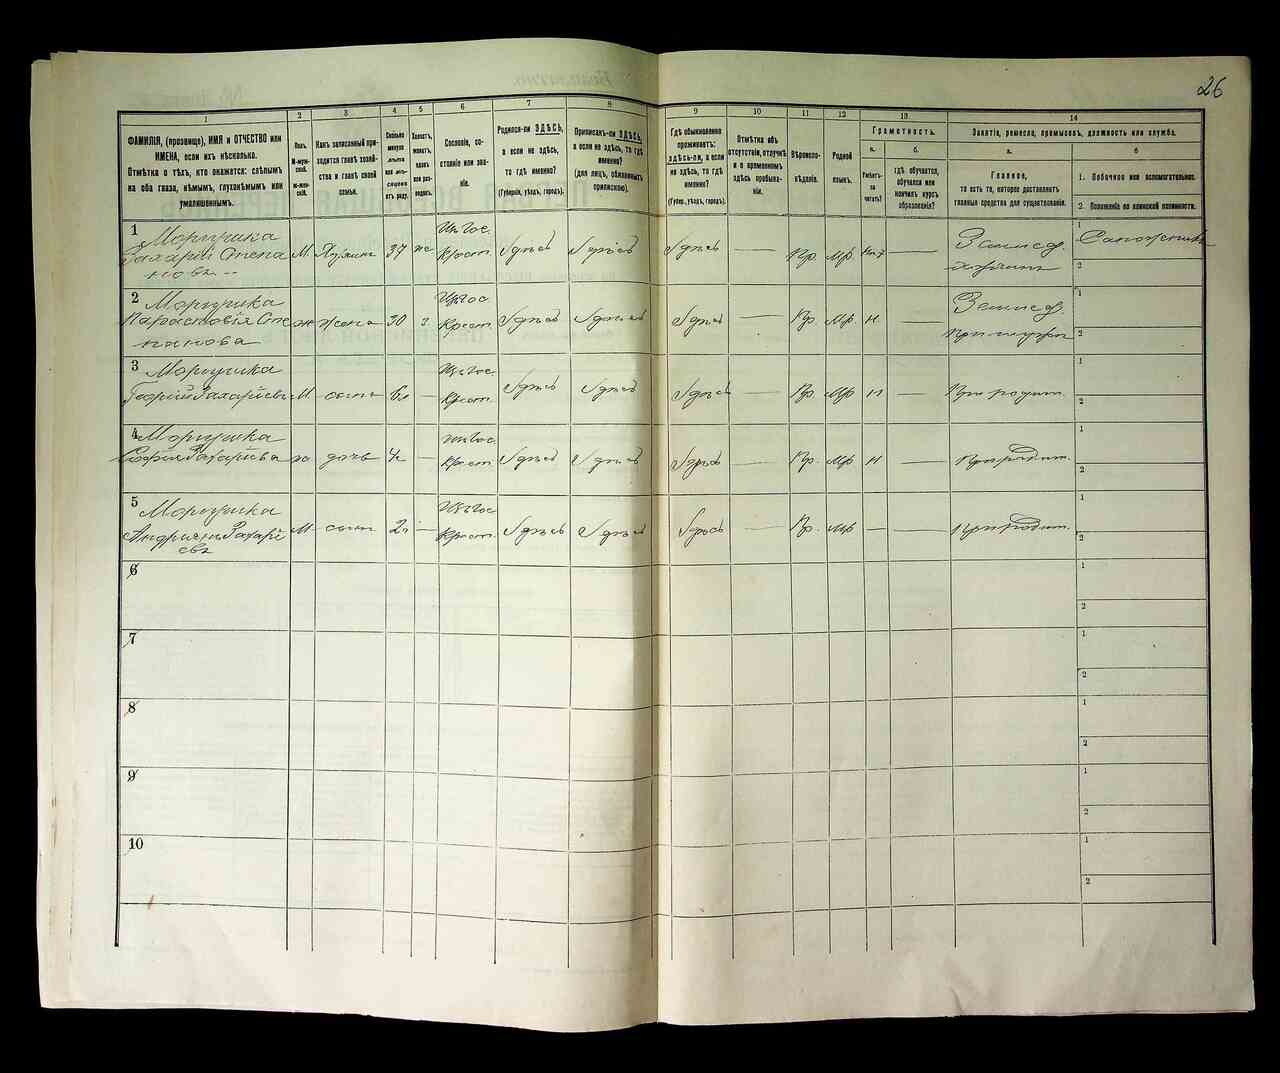 26
1
2
3
4
5
6
7
8
9
10
11
12
13
14
ФАМИЛІЯ, (прозвище), ИМЯ и ОТЧЕСТВО или
ИМЕНА, если ихъ нѣсколько.
Отмѣтка о тѣхъ, кто окажется: слѣпымъ
на оба глаза, нѣмымъ, глухонѣмымъ или
умалишеннымъ.
Полъ.
М-муж-
ской.
ж-жен-
скій.
Какъ записанный при-
ходится главѣ хозяй-
ства и главѣ своей
семьи.
Сколько
минуло
лѣтъ
или мѣ-
сяцевъ
отъ роду.
Холостъ,
женатъ,
вдовъ
или раз-
веденъ.
Сословіе, со-
стояніе или зва-
ніе.
Родился-ли ЗДѢСЬ,
а если не здѣсь,
то гдѣ именно?
(Губернія, уѣздъ, городъ).
Приписанъ-ли ЗДѢСЬ,
а если не здѣсь, то гдѣ
именно?
(для лицъ, обязанныхъ
припискою).
Гдѣ обыкновенно
проживаетъ:
здѣсь-ли, а если
не здѣсь, то гдѣ
именно?
(Губер., уѣздъ, городъ).
Отмѣтка объ
отсутствіи, отлучкѣ
и о временномъ
здѣсь пребыва-
ніи.
Вѣроиспо-
вѣданіе.
Родной
языкъ.
Грамотность.
а.
Умѣетъ-
ли
читать?
б.
гдѣ обучается,
обучался или
кончилъ курсъ
образованія?
Занятіе, ремесло, промыселъ, должность или служба.
а.
Главное,
то есть то, которое доставляетъ
главныя средства для существованія.
б
1. Побочное или вспомогательное.
2. Положеніе по воинской повинности.
1
Захарій Степа
новъ
М.
Хозяинъ
37
же
Крест.
Здѣсь
Здѣсь
Здѣсь
—
Пр.
Мр.
Землед.
хозяинъ
1
2
2
Парасковія Сте
панова
ж
жена
30
з.
Крест.
Здѣсь
Здѣсь
Здѣсь
—
Пр.
Мр.
н
Землед.
При мужѣ
1
2
3
Георгій Захаріевъ
М
сынъ
—
Крест.
Здѣсь
Здѣсь
Здѣсь
—
Пр.
Мр
н
—
При родит.
1
2
4
Софія Захаріева
ж
дочь
—
Крест.
Здѣсь
Здѣсь
Здѣсь
—
Пр.
Мр.
н
—
При родит.
1
2
5
Захарі
евъ
М
сынъ
—
Крест.
Здѣсь
Здѣсь
Здѣсь
—
Пр.
Мр.
—
—
При родит.
1
2
6
1
2
7
1
2
8
1
2
9
1
2
10
1
2